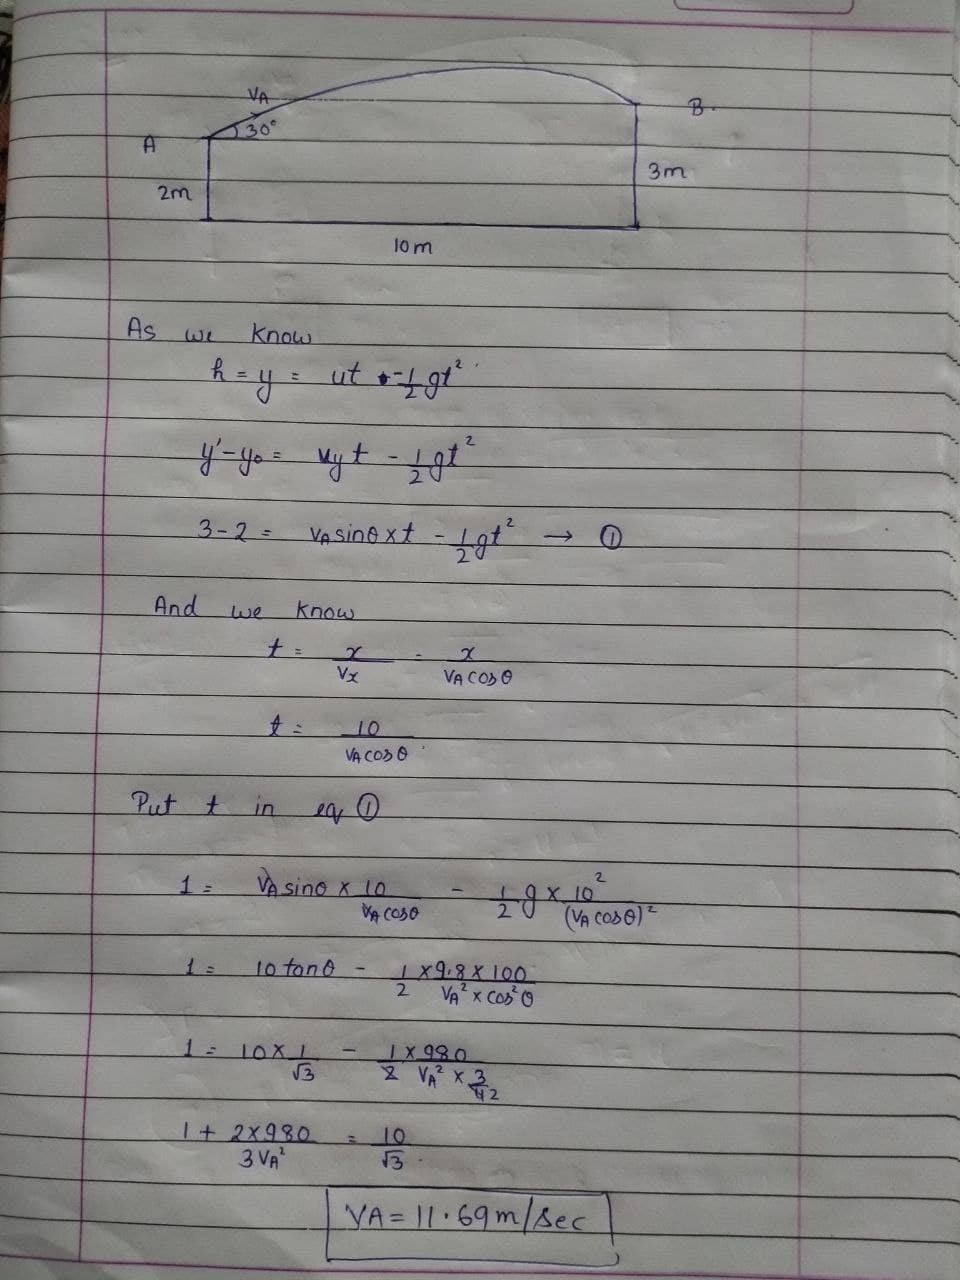 VA
30°
A
B.
2m
3m
10m
As we know
h = y = ut - 1/2 gt²
y' - y₀ = vy t - 1/2 gt²
3 - 2 = VA sinθ x t - 1/2 gt² → ①
And we know
t = x/Vx = x/VA cosθ
t = 10/VA cosθ
Put t in eq ①
1 = VA sinθ x 10/VA cosθ - 1/2 g x 10²/(VA cosθ)²
1 = 10 tanθ - 1/2 x 9.8 x 100/VA² x cos²θ
1 = 10 x 1/√3 - 1/2 x 980/VA² x 3/42
1 + 2x980/3VA² = 10/√3
VA = 11.69 m/sec